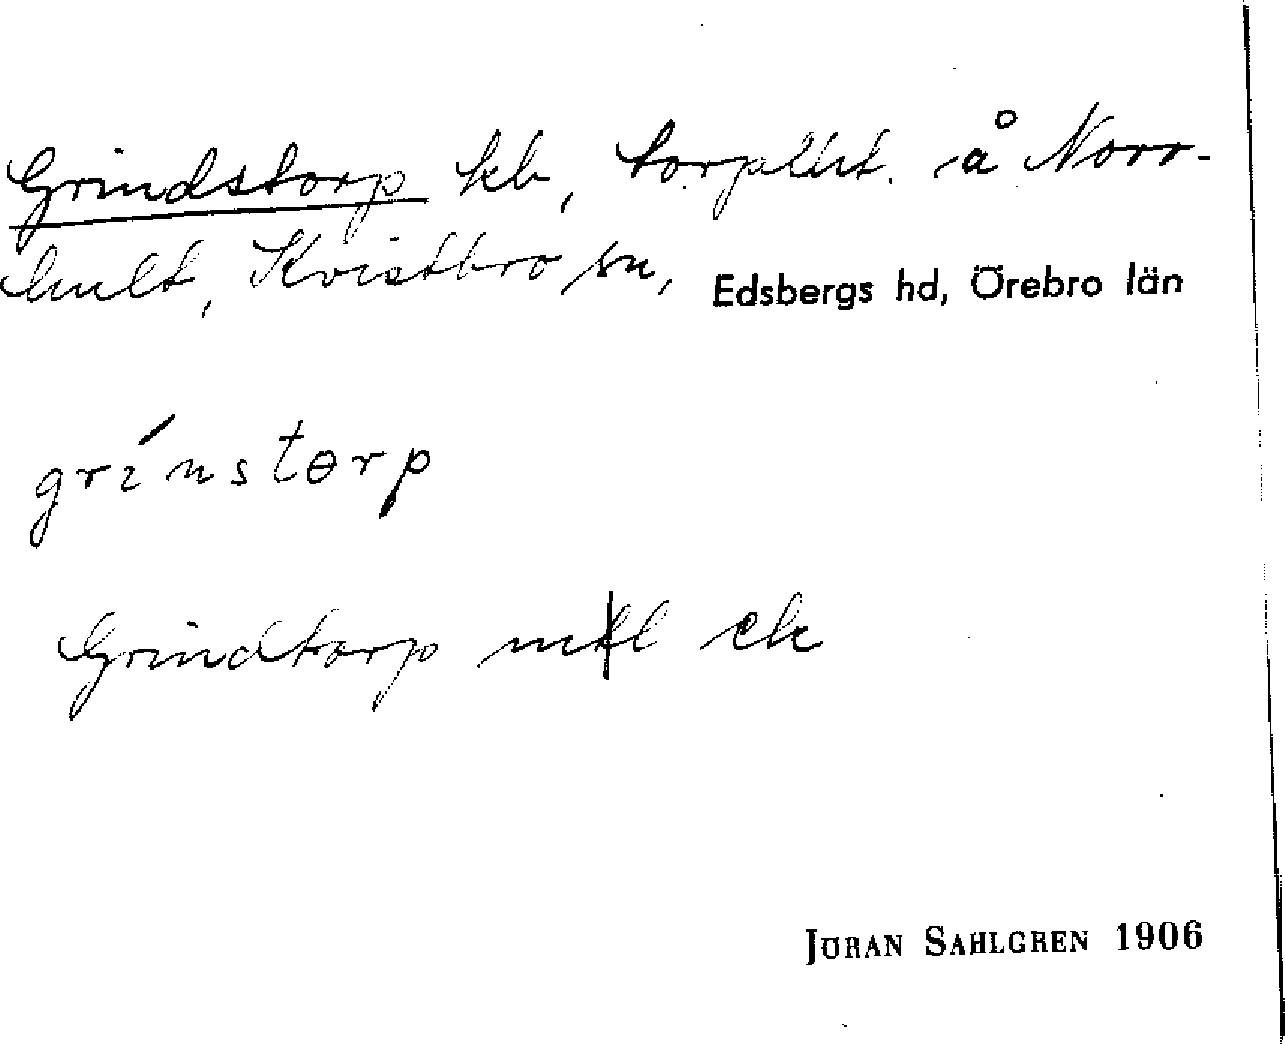 Grindstorp kb, torplht. å Norr-
hult, Kvistbro sn, Edsbergs hd, Örebro län
grinstɵrp
Grindtorp ek
JÖRAN SAHLGREN 1906